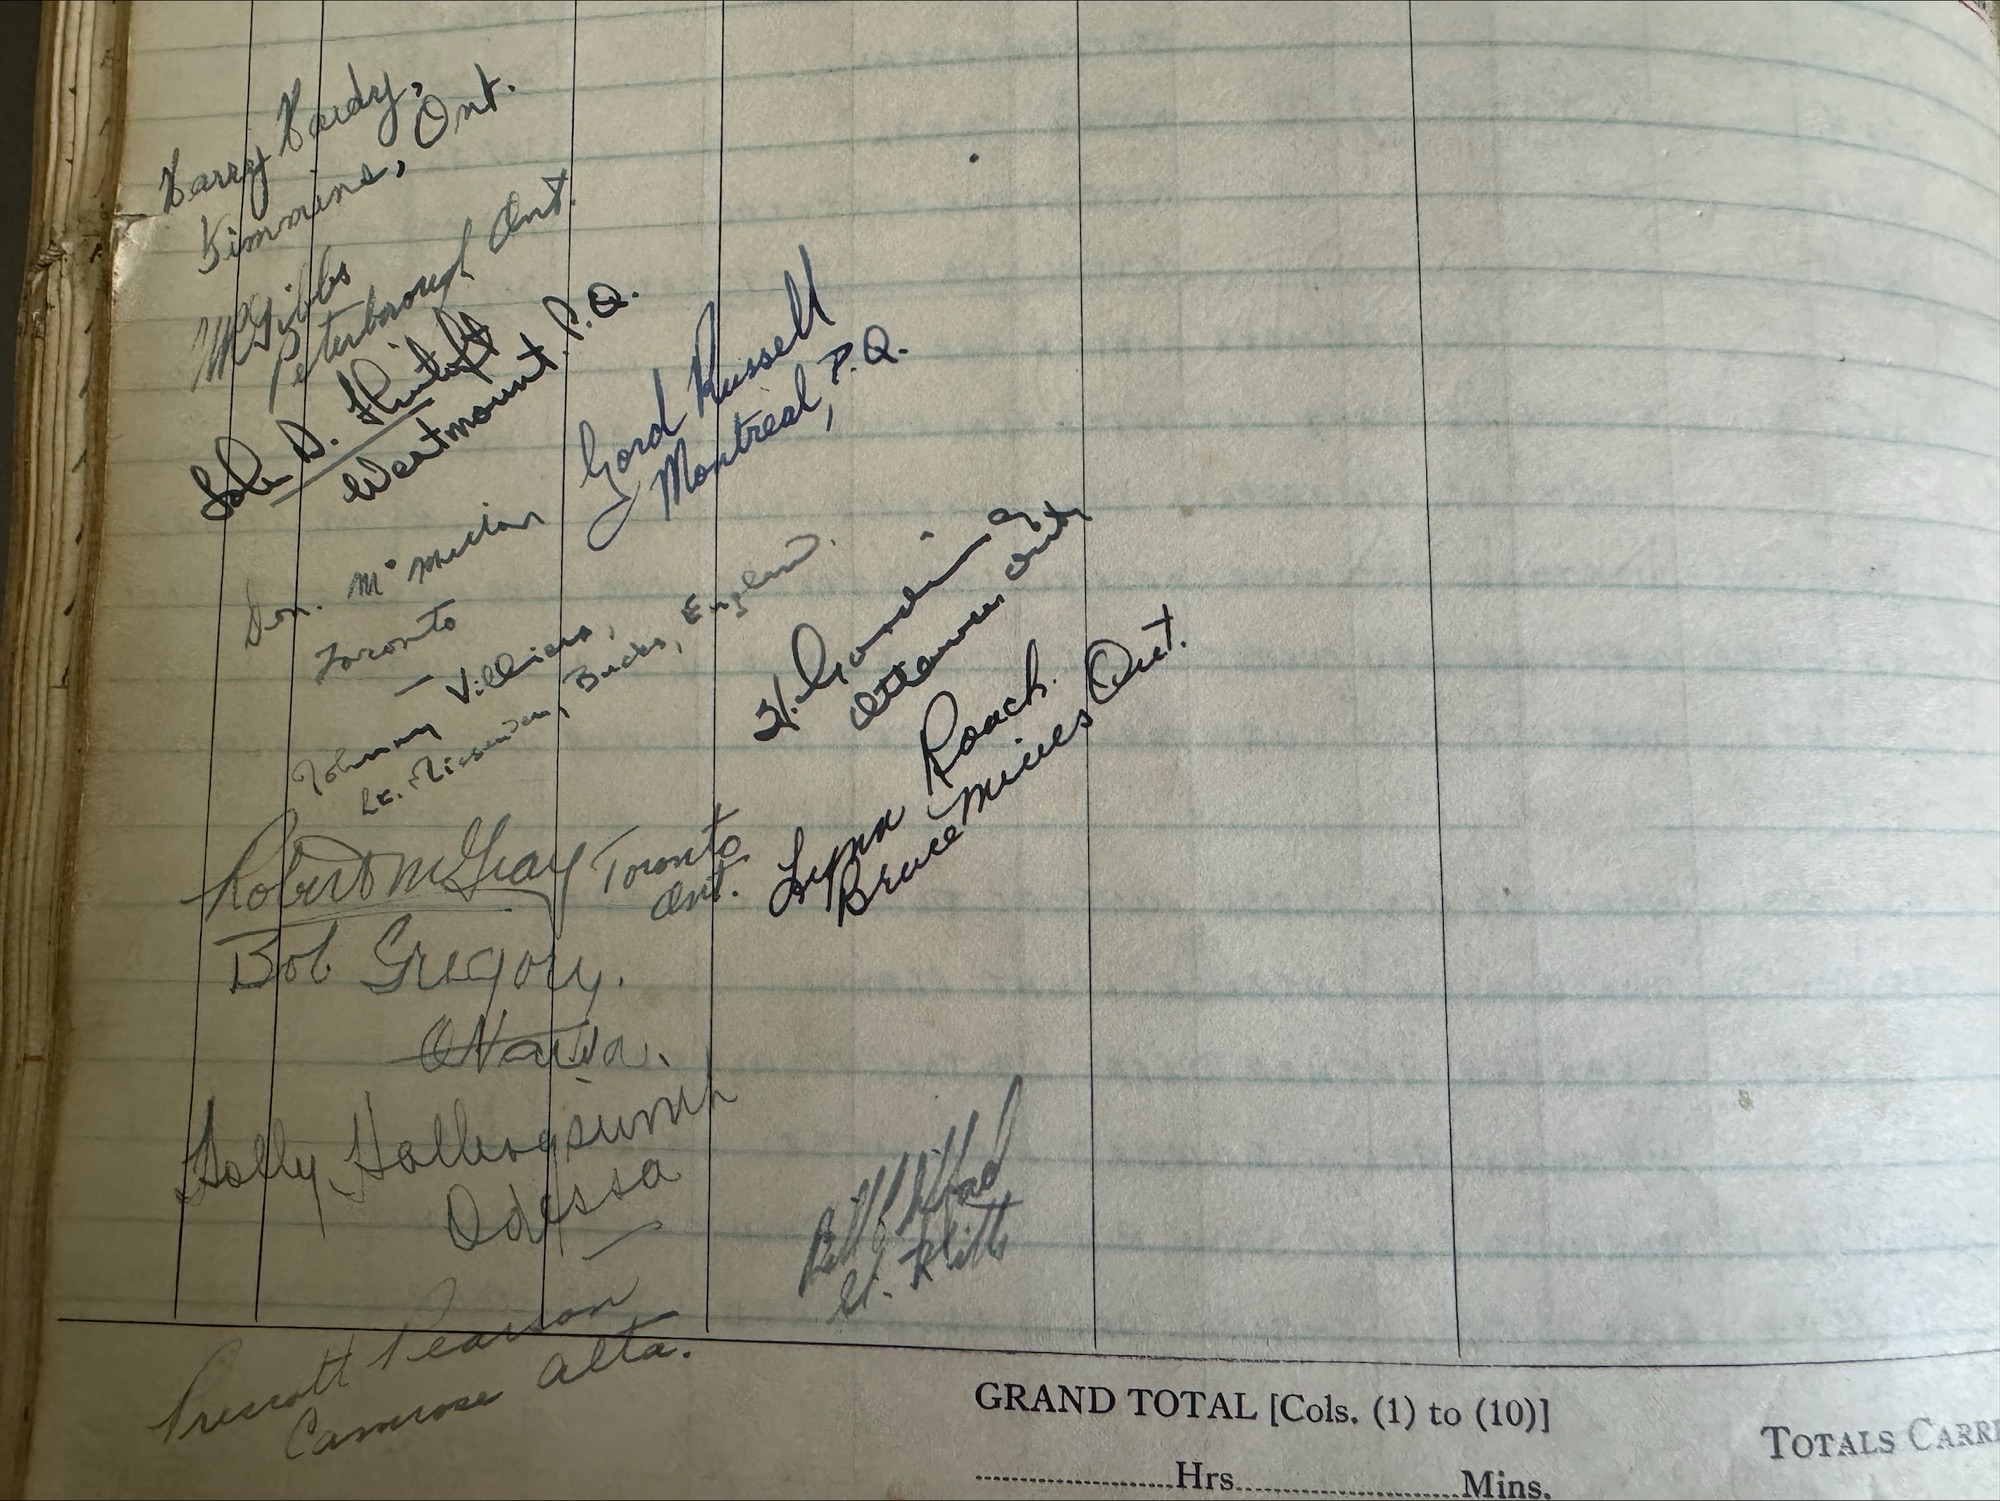 Harry Hardy,
Timmins, Ont.
McGibbs
Peterborough Ont.
John D.
Westmount. P.Q.
Gord Russell
Montreal, P.Q.
Don. McMillan
Toronto
Johnny Villiers,
Bucks, England.
H.
Ottawa Ont
Lynn Roach.
Bruce Mines Ont.
Robert McGray Toronto
Ont.
Bob Gregory.
Ottawa.
Holly Hollingsworth
Odessa
Bill Clifford
St. Kitts
Prescott Pearson
Camrose Alta.
GRAND TOTAL [Cols. (1) to (10)]
TOTALS CARRI
Hrs. Mins.